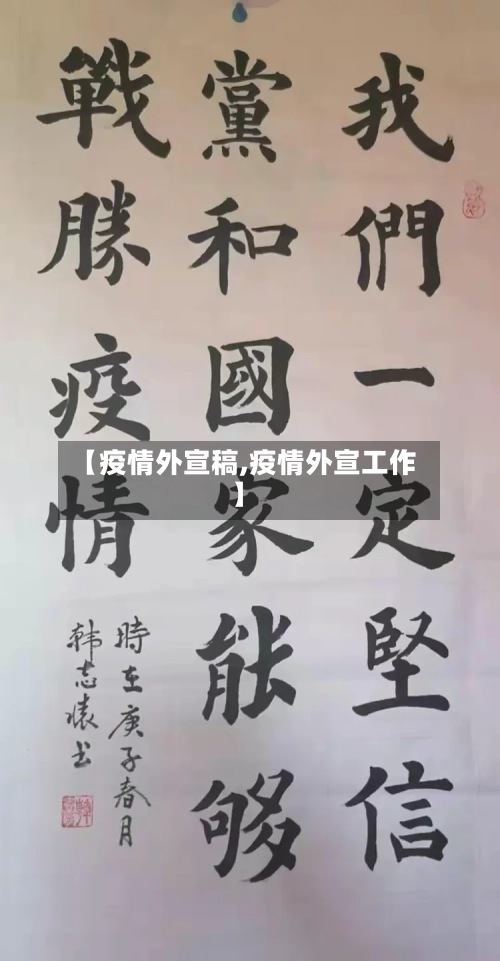 我們一定堅信
黨和國家能够
戰勝疫情
時在庚子春月
韩志懐书
【疫情外宣稿,疫情外宣工作
】